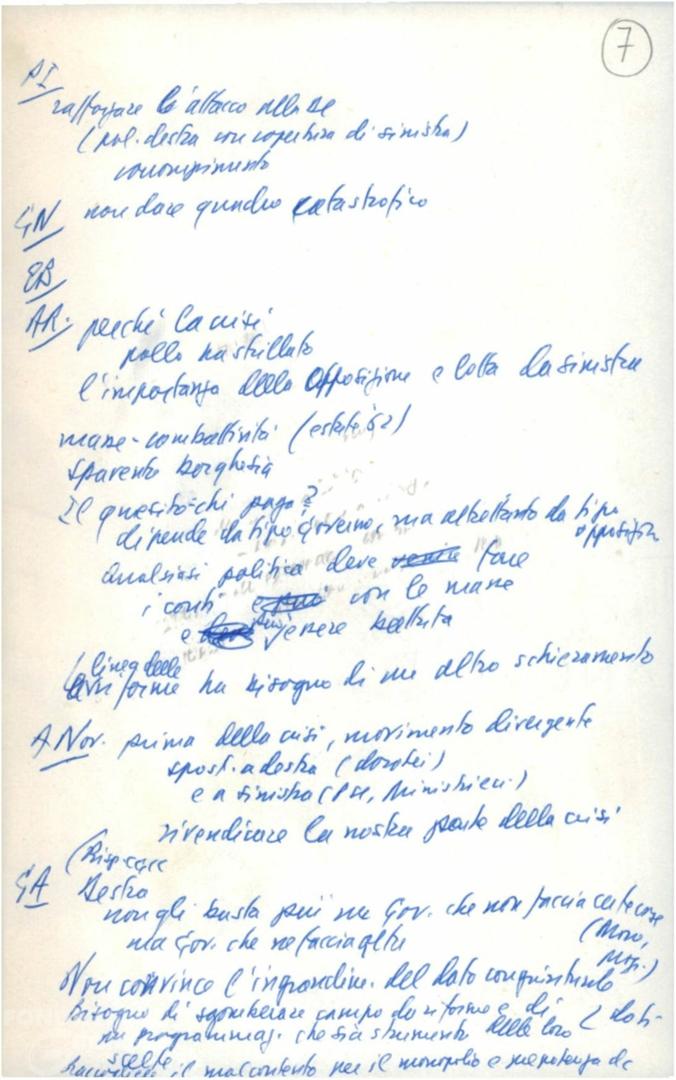 7
PI
rafforzare l'attacco alla DC
(pol. destra con copertura di sinistra)
GN non dare quadro catastrofico
EB
AR. perché la crisi
l'importanza della opposizione e lotta da sinistra
masse - combattività (estate '62)
spavento borghesia
Il quesito - chi paga?
dipende da tipo governo, ma altrettanto da tipo
opposizion
Qualsiasi politica deve venire fare
i conti con le masse
e può venire battuta
linea delle
riforme ha bisogno di un altro schieramento
A Nov. prima della crisi, movimento divergente
spost. a destra (dorotei)
e a sinistra (PSI,
rivendicare la nostra parte della crisi
GA Destra
non gli basta più un Gov. che non faccia certe cose
ma Gov. che ne faccia altre (Moro,
Non convince l'ingrandim. del dato congiunturale
Bisogno di sgomberare campo da riforme e di
un programmaz. che sia strumento delle loro
scelte
il malcontento per il monopolio e prepotenza dc